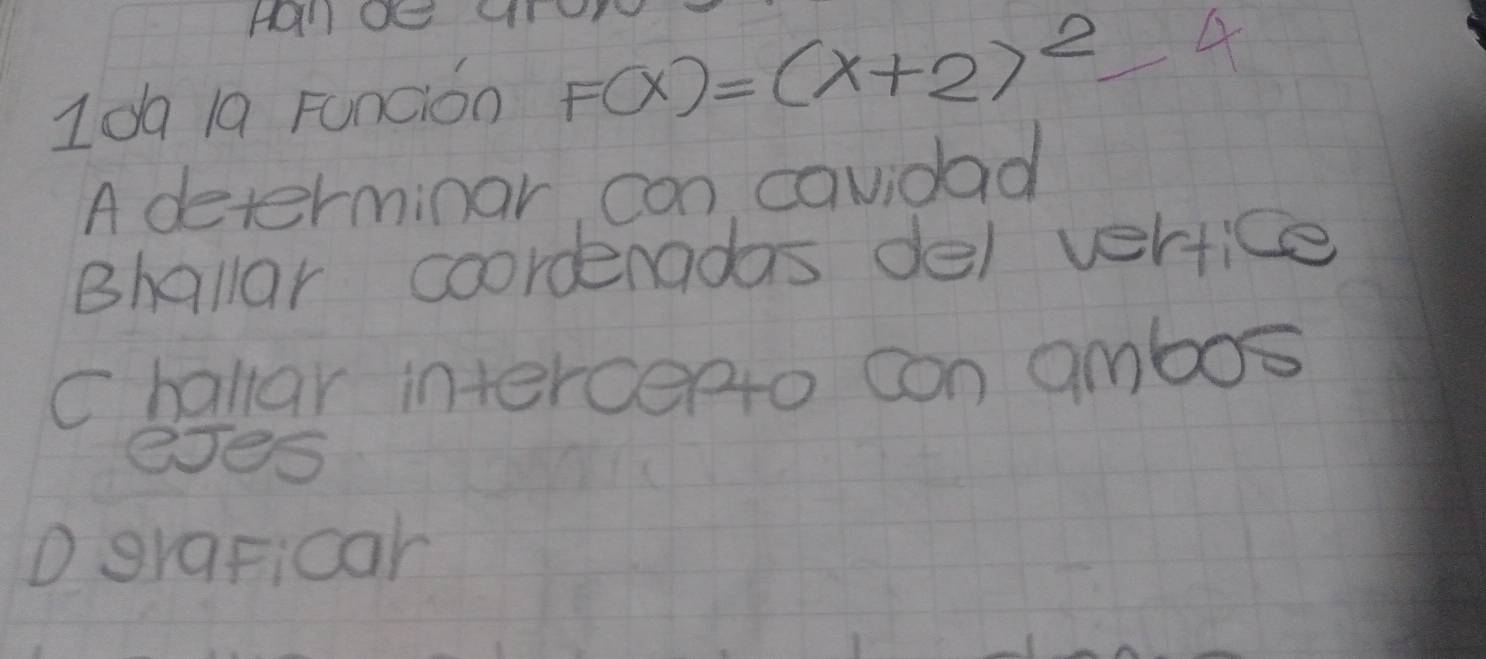 Han de
1 da la Función F(x)=(x+2)² - 4
A determinar con cavidad
B hallar coordenadas del vertice
C hallar intercepto con ambos
eJes
D graFicar